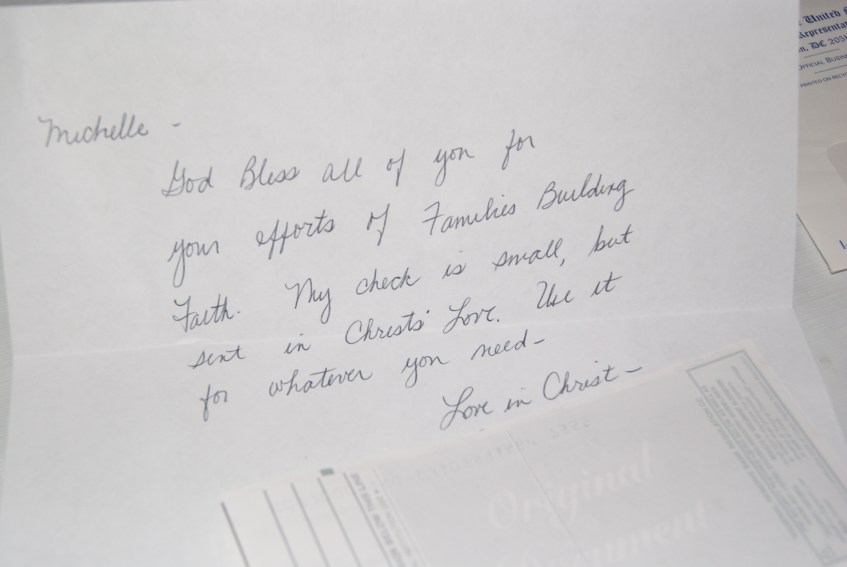 Michelle -
God Bless all of you for
your efforts of Families Building
Faith. My check is small, but
sent in Christs' Love. Use it
for whatever you need-
Love in Christ-
Original
United
n, DC 2051